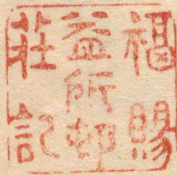 福賜
益所邨
莊記